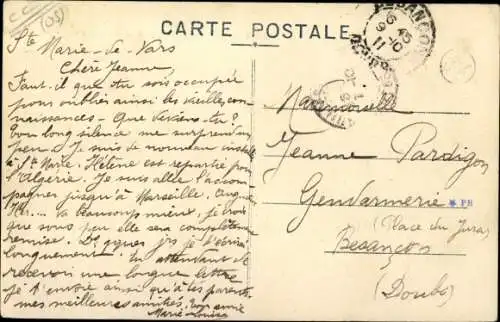 CARTE POSTALE
Ste
Marie-de-Vars
Chère Jeanne,
Faut-il que tu sois occupée
pour oublier ainsi les vieilles con-
naissances - Que deviens-tu?
Ton long silence me surprend un
peu - Je suis de nouveau installée
à Ste Marie. Hélène est repartie pour
l'Algérie. Je suis allée l'accom-
pagner jusqu'à Marseille.
va beaucoup mieux, je crois
que sous peu elle sera complètement
remise. Ds qques jrs je t'écrirai
longuement. En attendant de
recevoir une longue lettre
je t'envoie ainsi qu'à tes parents
mes meilleures amitiés. Ton amie
Marie-Louise
BESANÇON
6 45
9-10
11
DOUBS
Mademoiselle
Jeanne Pardigon
Gendarmerie
* PH
(Place du Jura)
Besançon
(Doubs)